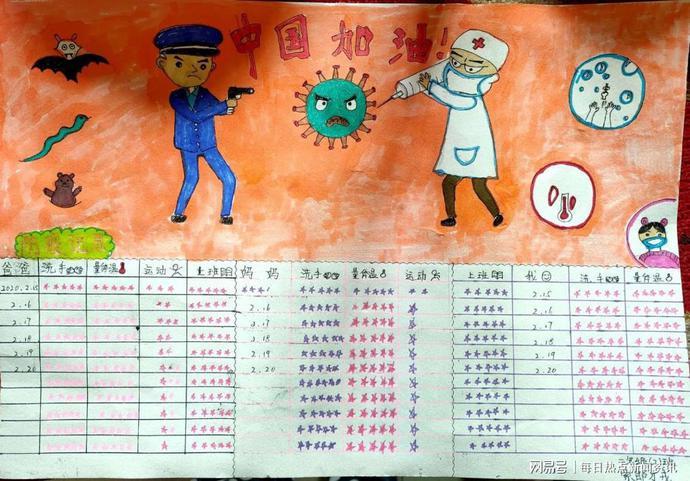 中国加油!
爸爸 洗手 量体温 运动 上班 妈妈 洗手 量体温 运动 上班 我 洗手 量体温
2020.2.15 2.15
2.16 2.16 2.16
2.17 2.17 2.17
2.18 2.18 2.18
2.19 2.19 2.19
2.20 2.20 2.20
网易号 | 每日热点新闻资讯